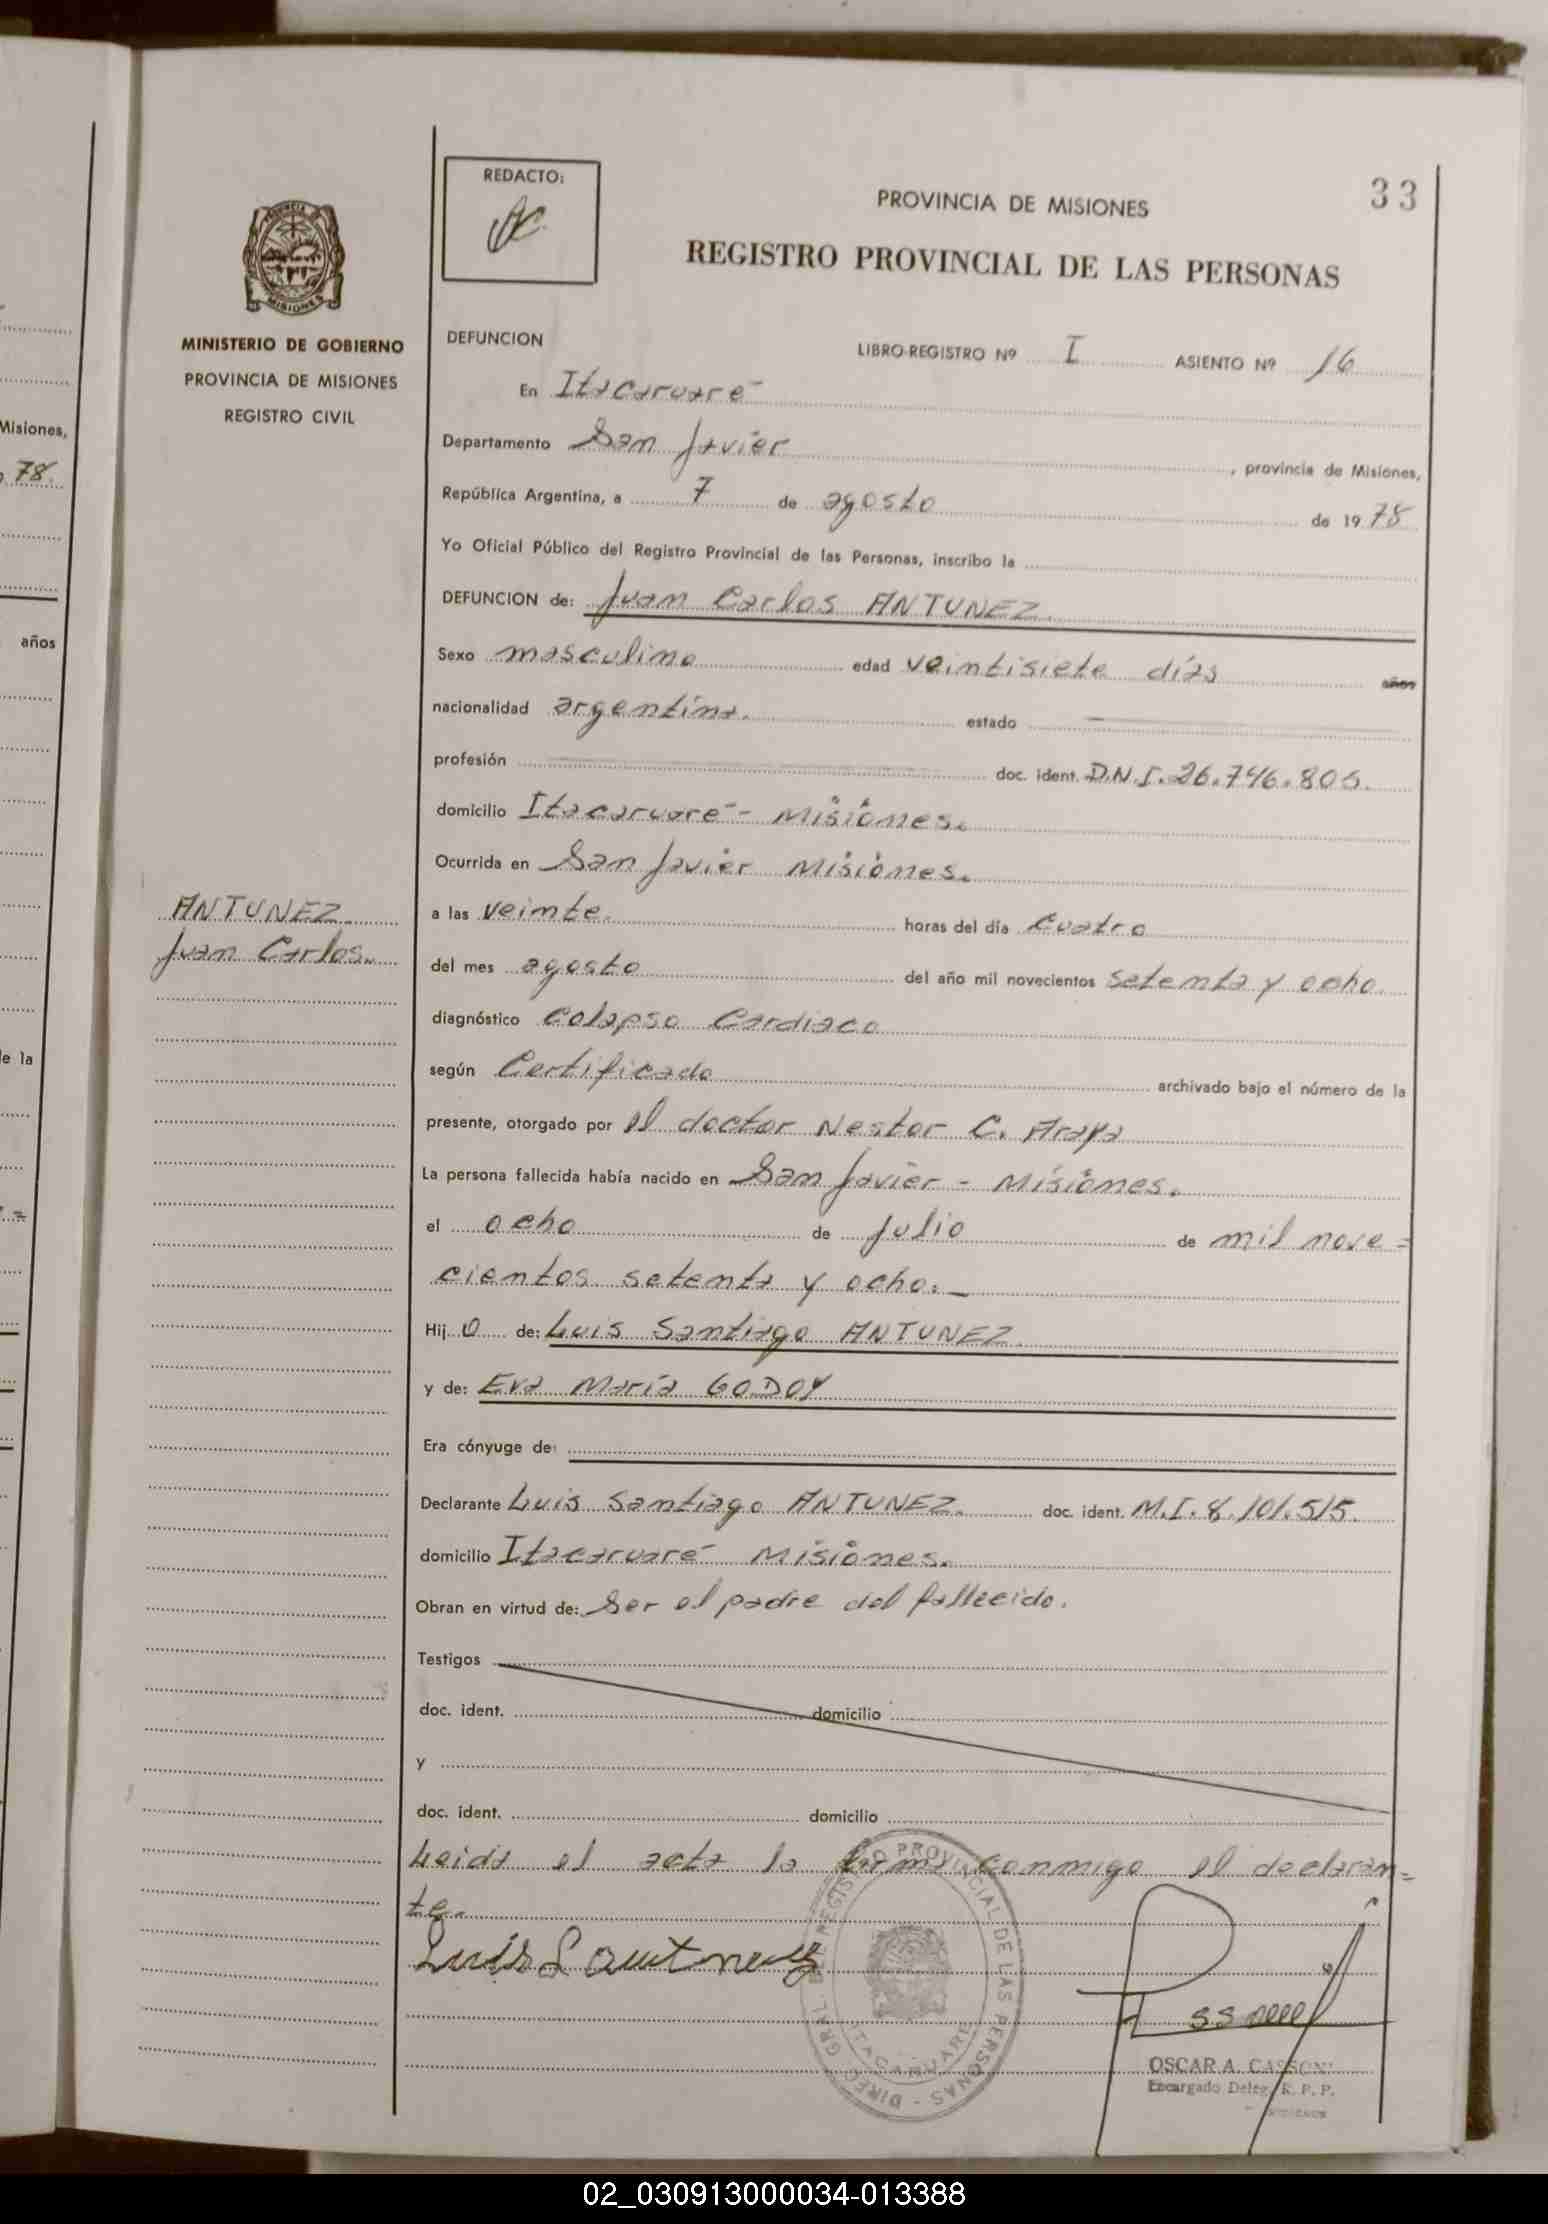 33
REDACTO:
PROVINCIA DE MISIONES
REGISTRO PROVINCIAL DE LAS PERSONAS
PROVINCIA DE
MISIONES
MINISTERIO DE GOBIERNO
PROVINCIA DE MISIONES
REGISTRO CIVIL
DEFUNCION
LIBRO-REGISTRO Nº I ASIENTO Nº 16
En Itacaruaré
Departamento San Javier, provincia de Misiones,
República Argentina, a 7 de agosto de 1978
Yo Oficial Público del Registro Provincial de las Personas, inscribo la
DEFUNCION de: Juan Carlos ANTUNEZ.
Sexo masculino edad veintisiete días años
nacionalidad argentina. estado
profesión doc. ident. D.N.I. 26.746.806.
domicilio Itacaruaré - Misiones.
Ocurrida en San Javier Misiones.
ANTUNEZ.
Juan Carlos.
a las veinte. horas del día cuatro
del mes agosto del año mil novecientos setenta y ocho.
diagnóstico Colapso Cardiaco
según Certificado archivado bajo el número de la
presente, otorgado por el doctor Nestor C. Araya
La persona fallecida había nacido en San Javier - Misiones.
el ocho de julio de mil nove=
cientos setenta y ocho.-
Hijo de: Luis Santiago ANTUNEZ.
y de: Eva María GODOY
Era cónyuge de:
Declarante Luis Santiago ANTUNEZ. doc. ident. M.I. 8.101.515.
domicilio Itacaruaré Misiones.
Obran en virtud de: Ser el padre del fallecido.
Testigos
doc. ident. domicilio
y
doc. ident. domicilio
Leida el acta la firma conmigo el declaran=
te.
Luis S
DIREC. GRAL. DE REGISTRO PROVINCIAL DE LAS PERSONAS
ITACARUARE
OSCAR A. CASSONI
Encargado Deleg. R. P. P.
Misiones,
78.
años
de la
02_030913000034-013388